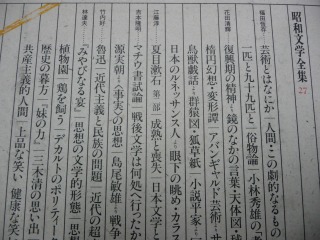 昭和文学全集 27
福田恆存
芸術とはなにか 人間・この劇的なるもの
一匹と九十九匹と 俗物論 小林秀雄の
花田清輝
復興期の精神 鏡のなかの言葉・天体図・
楕円幻想・変形譚 アバンギャルド・芸術
鳥獣戯話 群猿図・狐草紙 小説平家
日本のルネッサンス人 眼下の眺め・カラス
江藤淳
夏目漱石 第一部 成熟と喪失 日本文学と
吉本隆明
マチウ書試論 戦後文学は何処へ行ったか
源実朝 〈事実〉の思想 島尾敏雄 戦争
竹内好
魯迅 近代主義と民族の問題 近代の超
林達夫
『みやびなる宴』 思想の文学的形態 思
植物園 鶏を飼う デカルトのポリティー
歴史の暮方 『妹の力』 三木清の思い出
共産主義的人間 上品な笑い、健康な笑